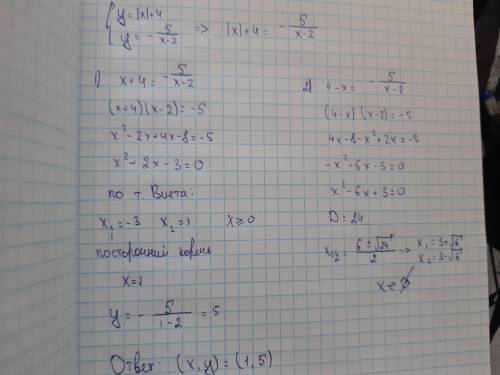 { y = |x|+4
{ y = - 5/(x-2) => |x|+4 = - 5/(x-2)
1) x+4 = - 5/(x-2)
(x+4)(x-2) = -5
x²-2x+4x-8 = -5
x²-2x-3=0
по т. Виета:
x₁=-3 x₂=1 x≥0
посторонний корень
x=1
y = - 5/(1-2) = 5
Ответ: (x,y) = (1,5)
2) 4-x = - 5/(x-2)
(4-x)(x-2) = -5
4x-8-x²+2x=-5
-x²-6x-3=0
x²-6x+3=0
D=24
x₁/₂ = (6±√24)/2 => x₁=3+√6
x₂=3-√6
x∈∅